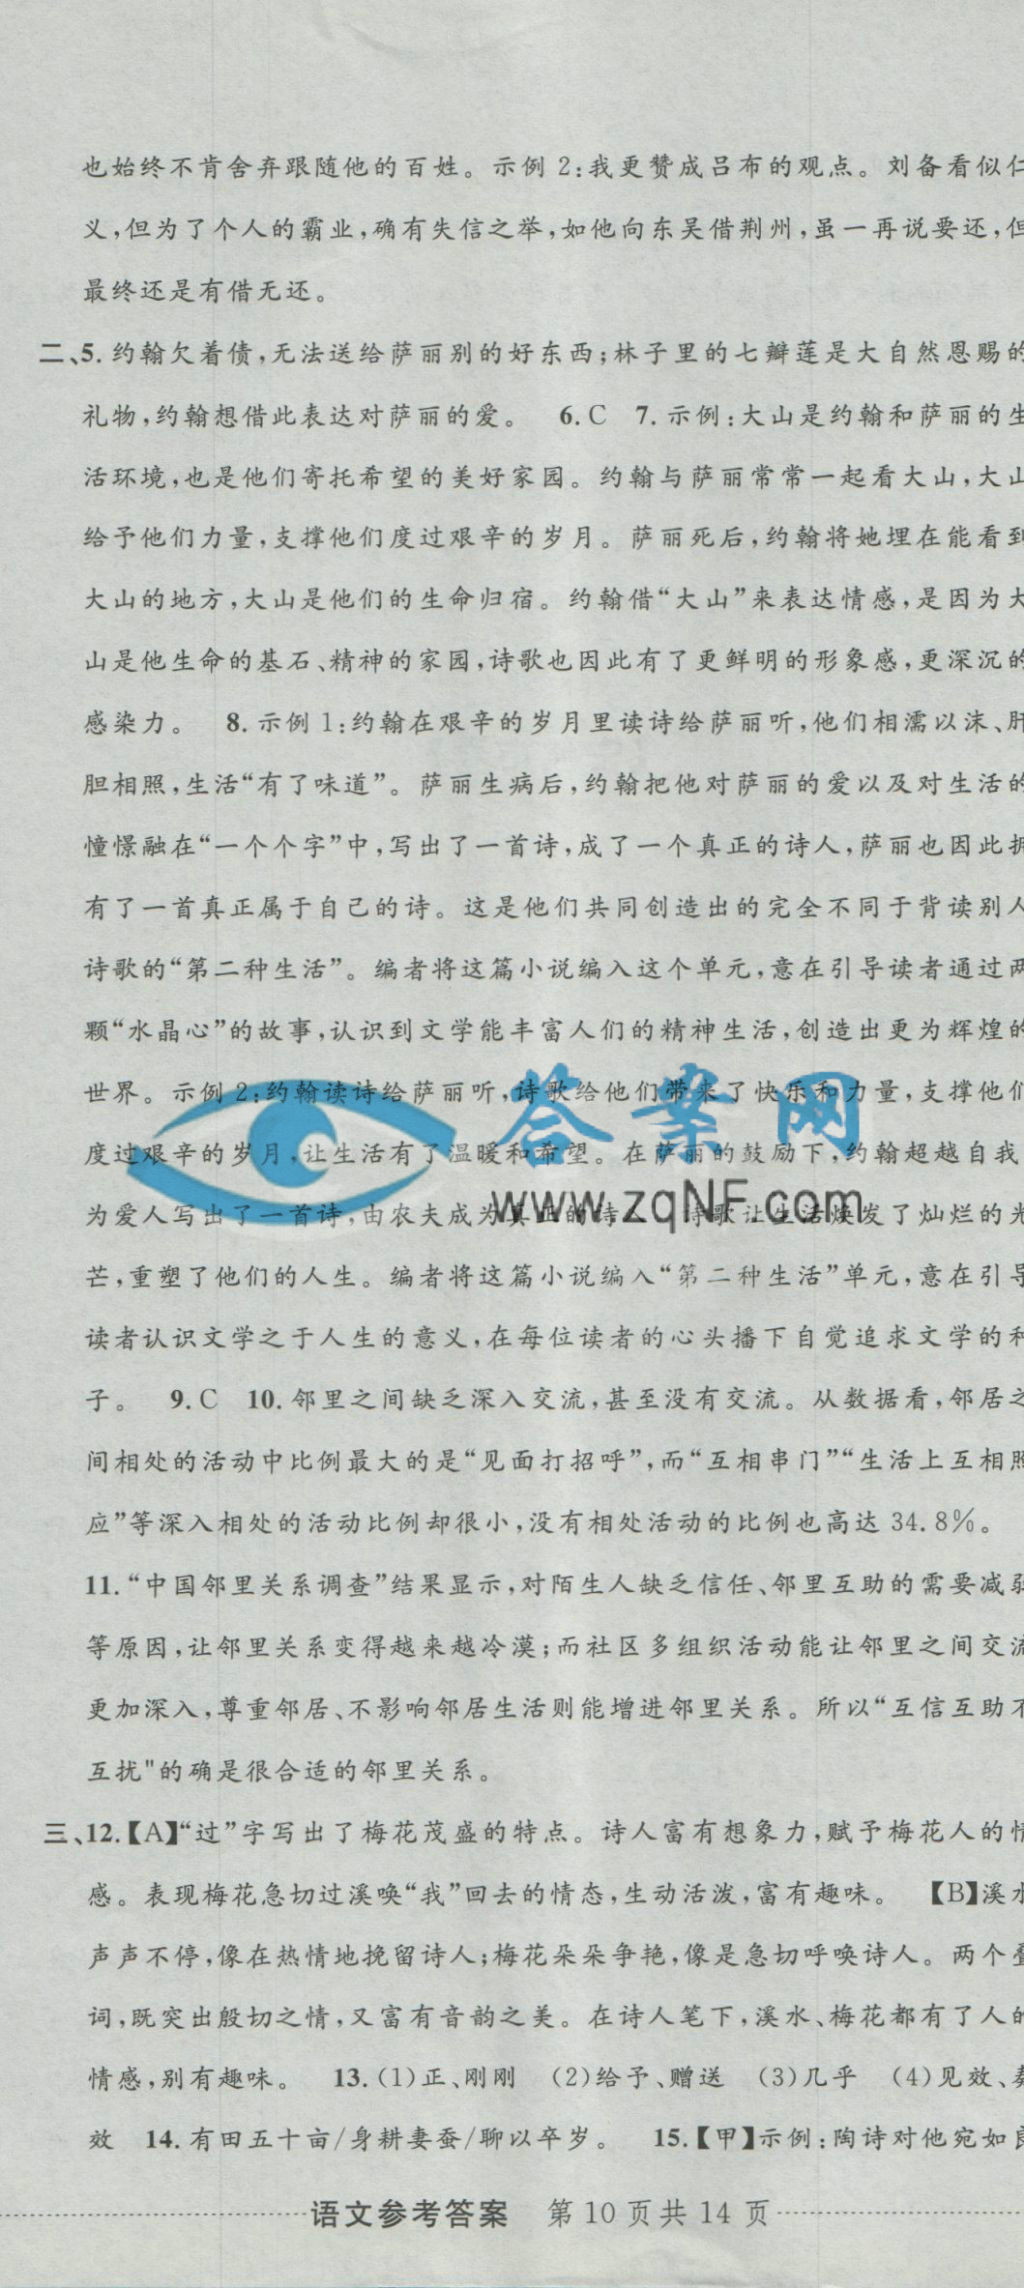 也始终不肯舍弃跟随他的百姓。示例 2:我更赞成吕布的观点。刘备看似仁
义,但为了个人的霸业,确有失信之举,如他向东吴借荆州,虽一再说要还,但
最终还是有借无还。
二、5. 约翰欠着债,无法送给萨丽别的好东西;林子里的七瓣莲是大自然恩赐的
礼物,约翰想借此表达对萨丽的爱。 6. C 7. 示例:大山是约翰和萨丽的生
活环境,也是他们寄托希望的美好家园。约翰与萨丽常常一起看大山,大山
给予他们力量,支撑他们度过艰辛的岁月。萨丽死后,约翰将她埋在能看到
大山的地方,大山是他们的生命归宿。约翰借“大山”来表达情感,是因为大
山是他生命的基石、精神的家园,诗歌也因此有了更鲜明的形象感,更深沉的
感染力。 8. 示例 1:约翰在艰辛的岁月里读诗给萨丽听,他们相濡以沫、肝
胆相照,生活“有了味道”。萨丽生病后,约翰把他对萨丽的爱以及对生活的
憧憬融在“一个个字”中,写出了一首诗,成了一个真正的诗人,萨丽也因此拥
有了一首真正属于自己的诗。这是他们共同创造出的完全不同于背读别人
诗歌的“第二种生活”。编者将这篇小说编入这个单元,意在引导读者通过两
颗“水晶心”的故事,认识到文学能丰富人们的精神生活,创造出更为辉煌的
世界。示例 2:约翰读诗给萨丽听,诗歌给他们带来了快乐和力量,支撑他们
度过艰辛的岁月,让生活有了温暖和希望。在萨丽的鼓励下,约翰超越自我
为爱人写出了一首诗,由农夫成为真正的诗 诗歌让生活焕发了灿烂的光
芒,重塑了他们的人生。编者将这篇小说编入“第二种生活”单元,意在引导
读者认识文学之于人生的意义,在每位读者的心头播下自觉追求文学的种
子。 9. C 10. 邻里之间缺乏深入交流,甚至没有交流。从数据看,邻居之
间相处的活动中比例最大的是“见面打招呼”,而“互相串门”“生活上互相照
应”等深入相处的活动比例却很小,没有相处活动的比例也高达 34.8%。
11. “中国邻里关系调查”结果显示,对陌生人缺乏信任、邻里互助的需要减弱
等原因,让邻里关系变得越来越冷漠;而社区多组织活动能让邻里之间交流
更加深入,尊重邻居、不影响邻居生活则能增进邻里关系。所以“互信互助不
互扰"的确是很合适的邻里关系。
三、12.【A】“过”字写出了梅花茂盛的特点。诗人富有想象力,赋予梅花人的情
感。表现梅花急切过溪唤“我”回去的情态,生动活泼,富有趣味。 【B】溪水
声声不停,像在热情地挽留诗人;梅花朵朵争艳,像是急切呼唤诗人。两个叠
词,既突出殷切之情,又富有音韵之美。在诗人笔下,溪水、梅花都有了人的
情感,别有趣味。 13. (1)正、刚刚 (2)给予、赠送 (3)几乎 (4)见效、奏
效 14. 有田五十亩/身耕妻蚕/聊以卒岁。 15.【甲】示例:陶诗对他宛如良
语文参考答案 第 10 页共 14 页
答案网
www.zqNF.com